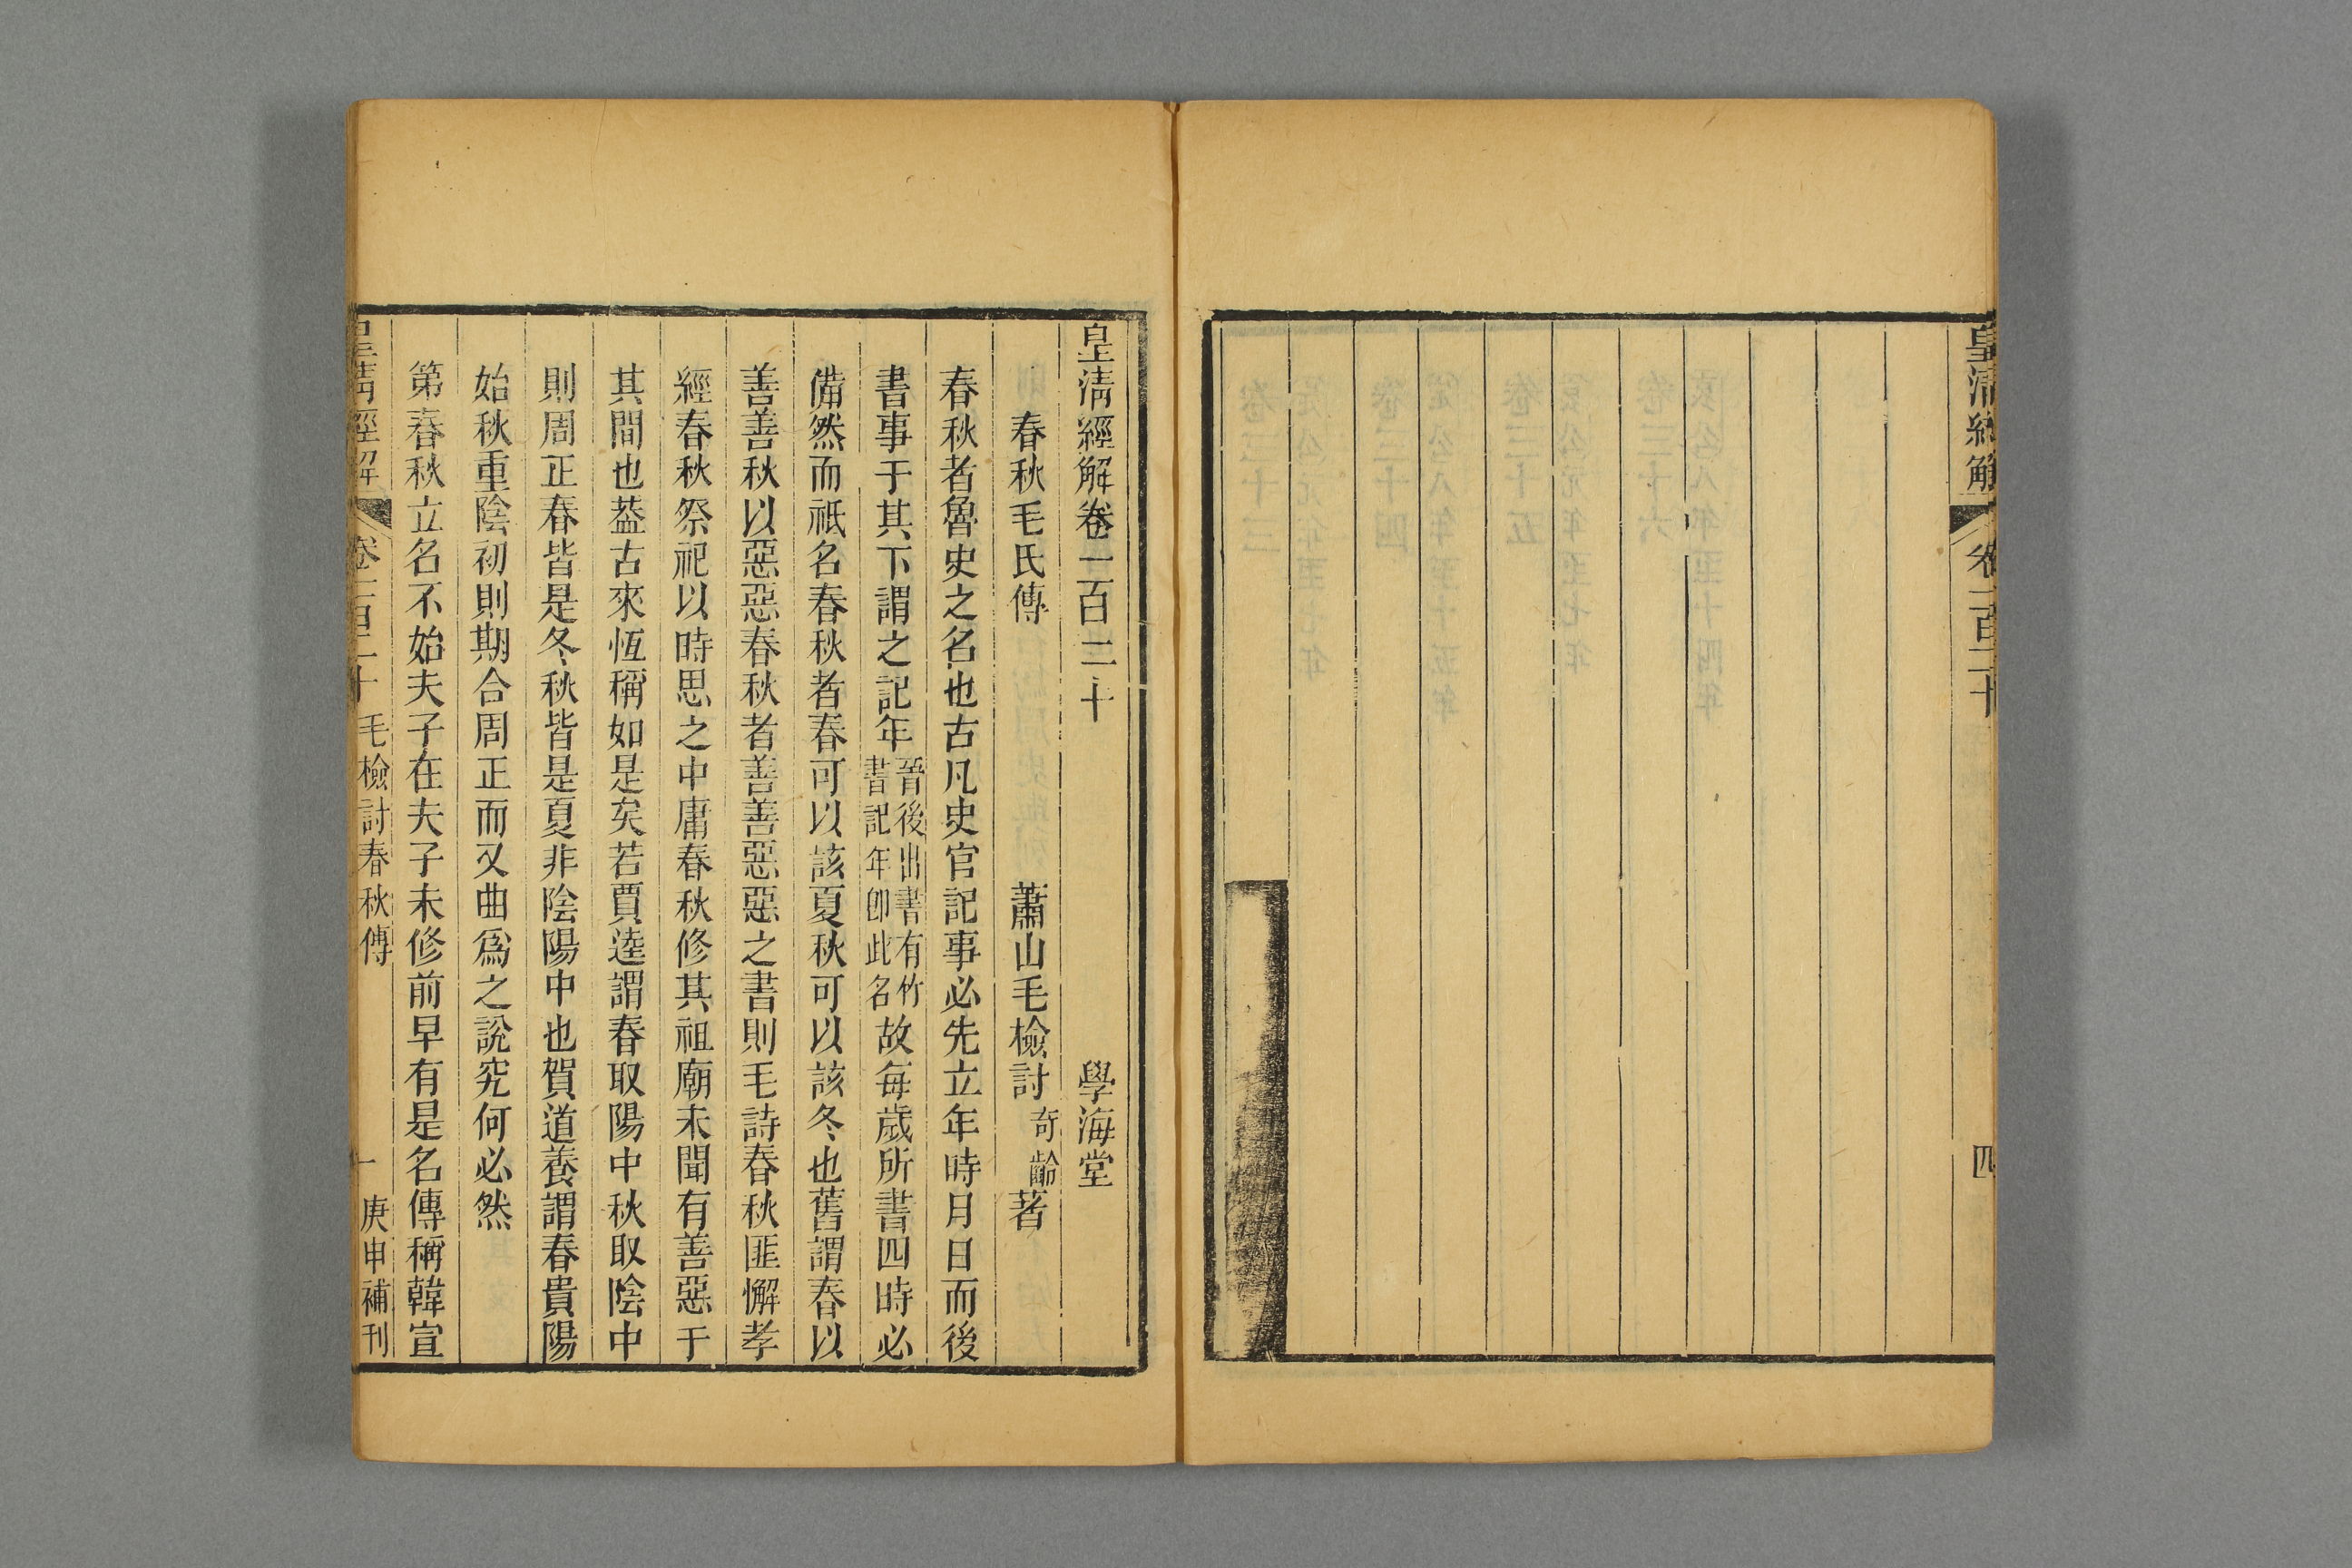 皇清經解 卷一百二十 四
皇清經解卷一百二十 學海堂
春秋毛氏傳 蕭山毛檢討奇齡著
春秋者魯史之名也古凡史官記事必先立年時月日而後
書事于其下謂之記年晉後出書有竹書記年卽此名故每歲所書四時必
備然而祗名春秋者春可以該夏秋可以該冬也舊謂春以
善善秋以惡惡春秋者善善惡惡之書則毛詩春秋匪懈孝
經春秋祭祀以時思之中庸春秋修其祖廟未聞有善惡于
其間也葢古來恆稱如是矣若賈逵謂春取陽中秋取陰中
則周正春皆是冬秋皆是夏非陰陽中也賀道養謂春貴陽
始秋重陰初則期合周正而又曲爲之說究何必然
第春秋立名不始夫子在夫子未修前早有是名傳稱韓宣
皇清經解 卷一百二十 毛檢討春秋傳 一 庚申補刊